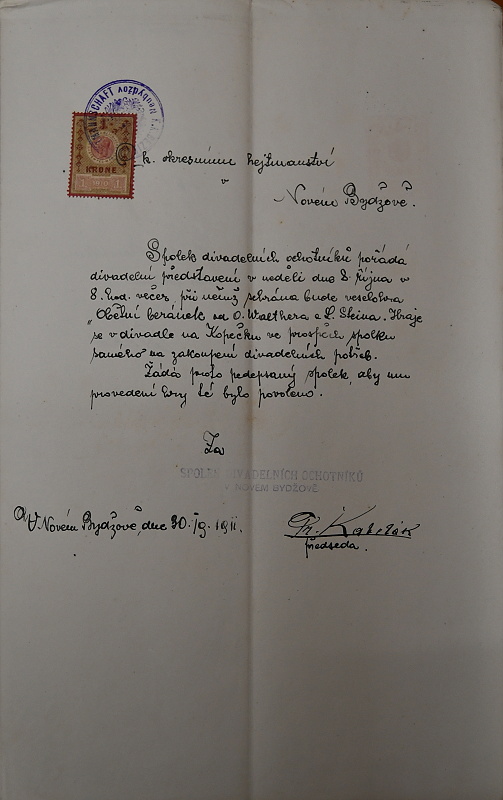 HAUPTMANNSCHAFT Neubydžov
KRONE
1 1910 1
k. okresnímu hejtmanství
v
Novém Bydžově.
Spolek divadelních ochotníků pořádá
divadelní představení v neděli dne 8. října v
8. hod. večer, při němž sehrána bude veselohra
„Obětní beránek" od O. Walthera a L. Steina. Hraje
se v divadle na Kopečku ve prospěch spolku
samého na zakoupení divadelních potřeb.
Žádá proto podepsaný spolek, aby mu
provedení hry té bylo povoleno.
Za
SPOLEK DIVADELNÍCH OCHOTNÍKŮ
V NOVÉM BYDŽOVĚ
V Novém Bydžově, dne 30./9. 1911.
předseda.